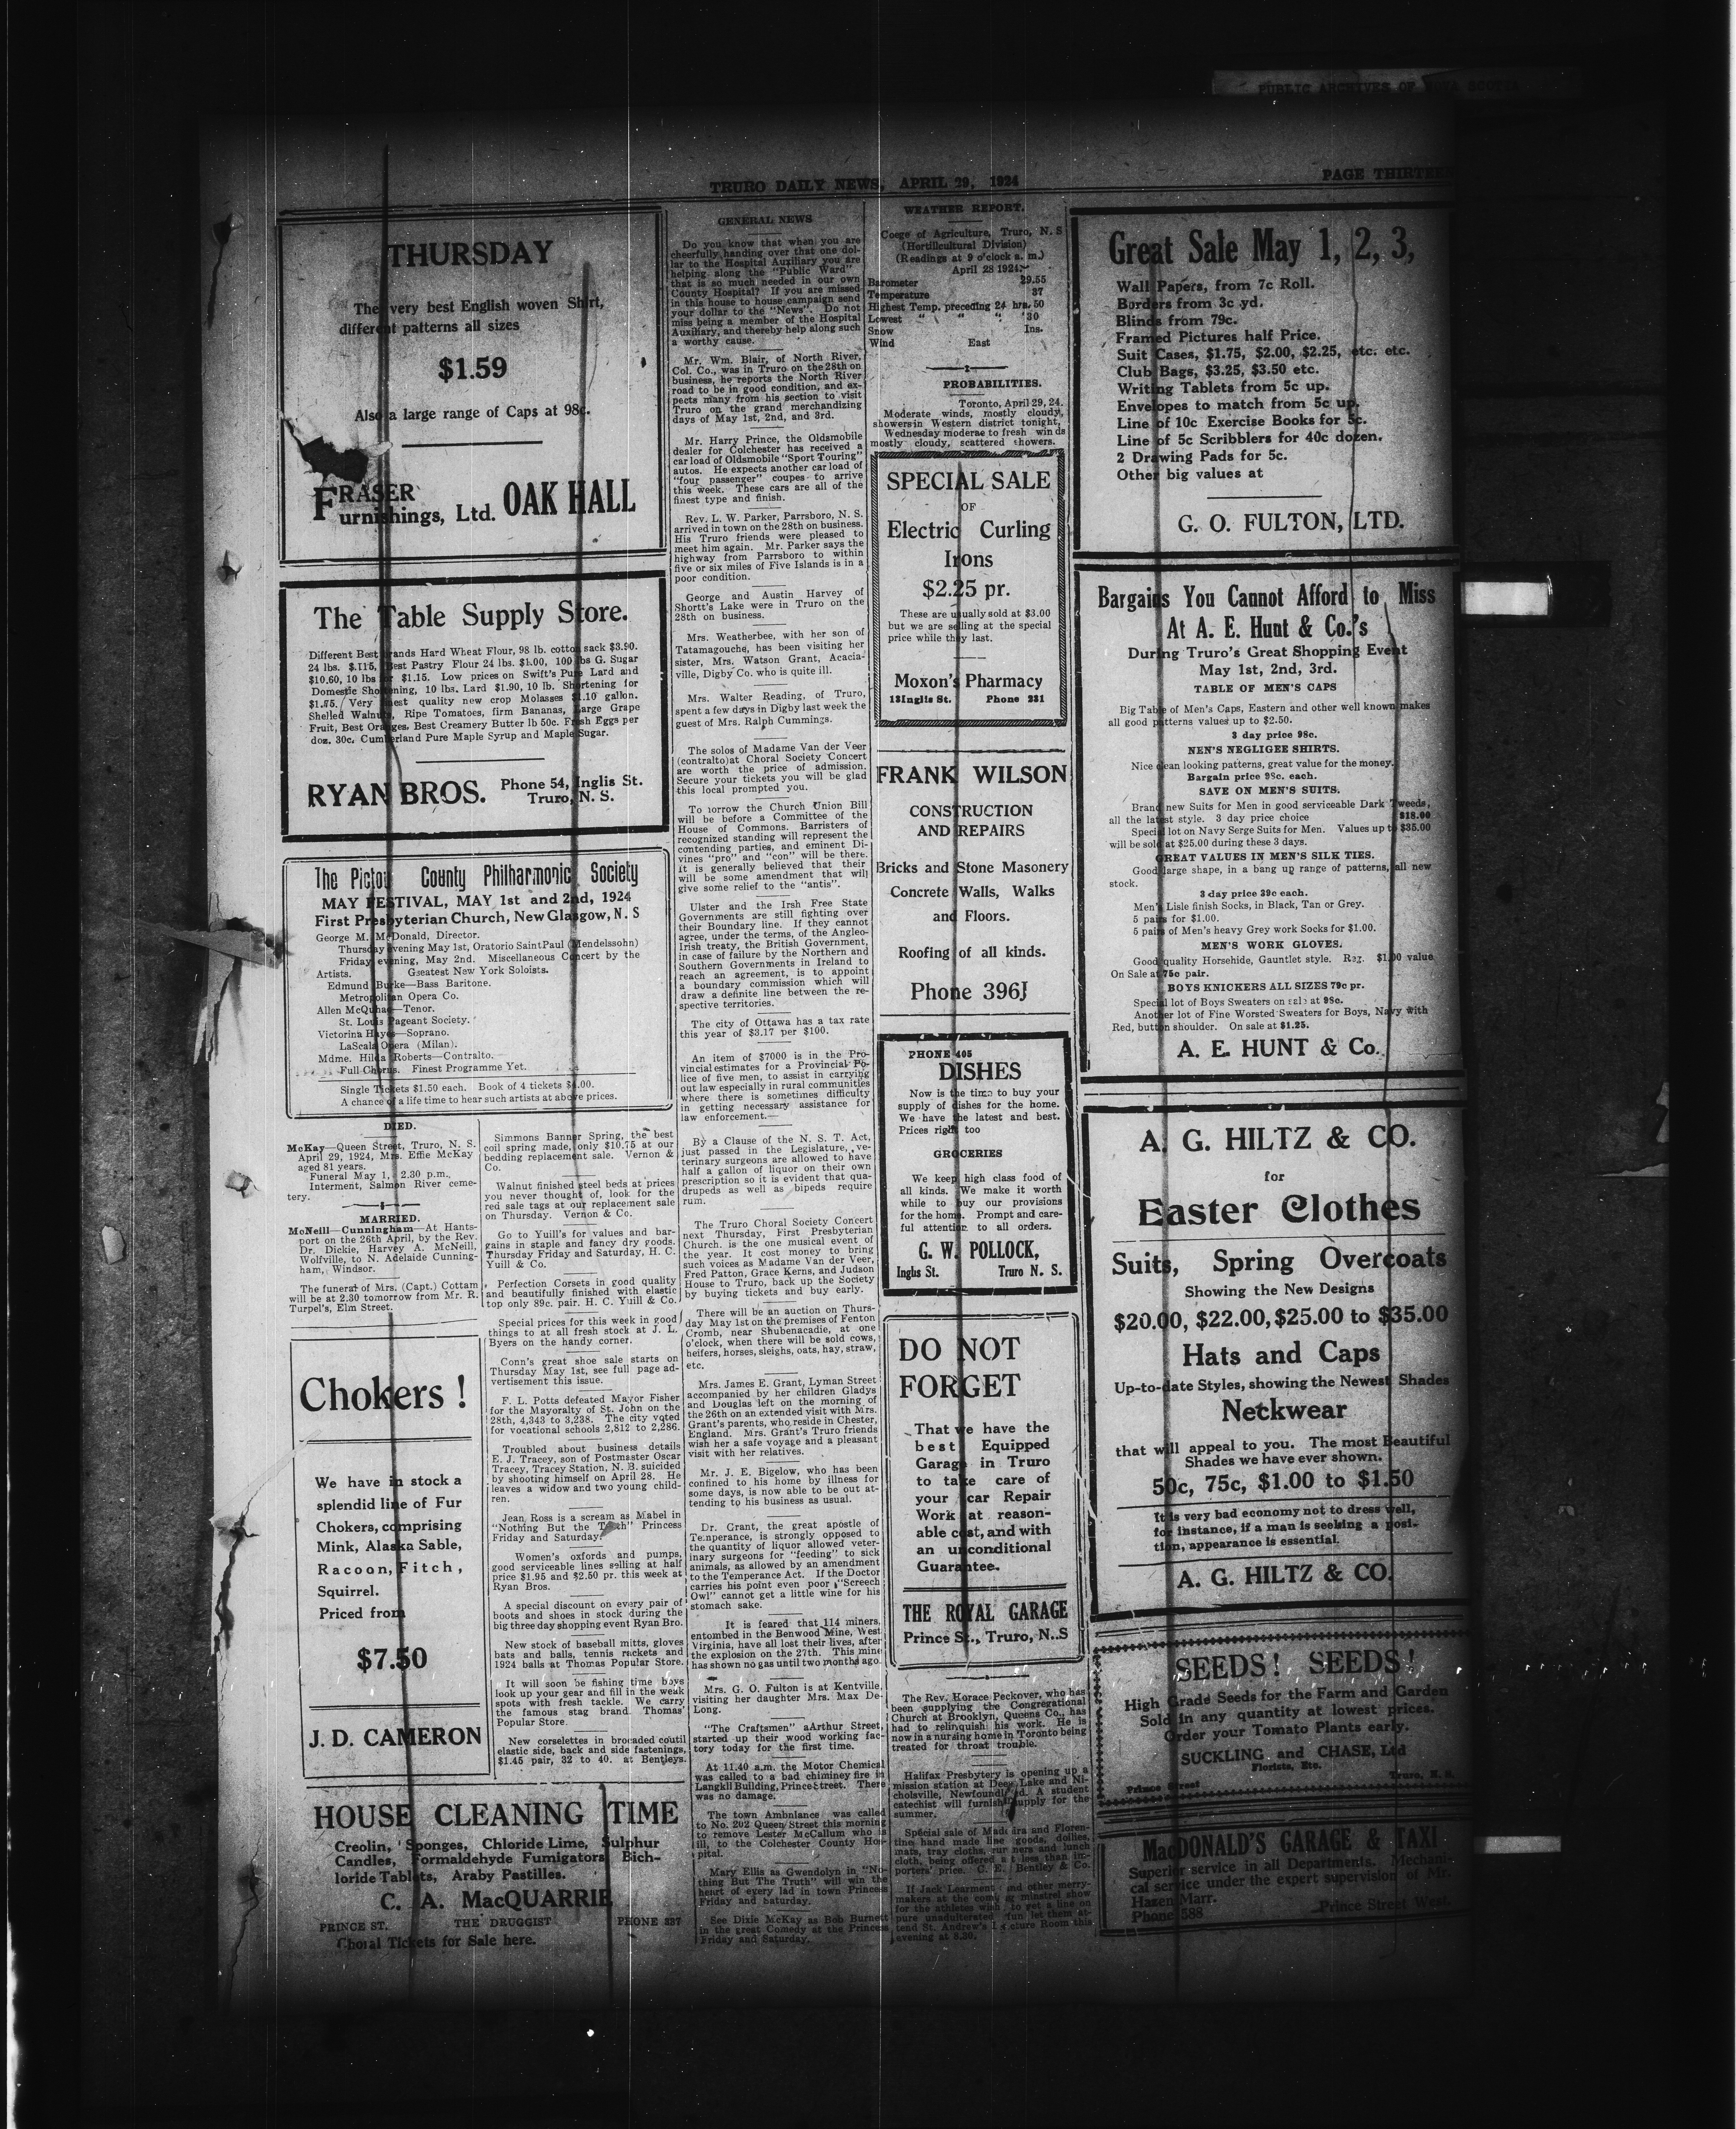 PUBLIC ARCHIVES OF NOVA SCOTIA
TRURO DAILY NEWS, APRIL 29, 1924
PAGE THIRTEEN
THURSDAY
The very best English woven Shirt,
different patterns all sizes
$1.59
Also a large range of Caps at 98c.
FRASER
Furnishings, Ltd. OAK HALL
The Table Supply Store.
Different Best Brands Hard Wheat Flour, 98 lb. cotton sack $3.90.
24 lbs. $.115, Best Pastry Flour 24 lbs. $1.00, 100 lbs G. Sugar
$10.60, 10 lbs for $1.15. Low prices on Swift's Pure Lard and
Domestic Shortening, 10 lbs. Lard $1.90, 10 lb. Shortening for
$1.75. Very finest quality new crop Molasses $1.10 gallon.
Shelled Walnuts, Ripe Tomatoes, firm Bananas, Large Grape
Fruit, Best Oranges, Best Creamery Butter lb 50c. Fresh Eggs per
doz. 30c. Cumberland Pure Maple Syrup and Maple Sugar.
RYAN BROS. Phone 54, Inglis St.
Truro, N. S.
The Pictou County Philharmonic Society
MAY FESTIVAL, MAY 1st and 2nd, 1924
First Presbyterian Church, New Glasgow, N. S
George M. McDonald, Director.
Thursday evening May 1st, Oratorio Saint Paul (Mendelssohn)
Friday evening, May 2nd. Miscellaneous Concert by the
Artists. Gseatest New York Soloists.
Edmund Burke—Bass Baritone.
Metropolitan Opera Co.
Allen McQuhae—Tenor.
St. Louis Pageant Society.
Victorina Hayes—Soprano.
LaScala Opera (Milan).
Mdme. Hilda Roberts—Contralto.
Full Chorus. Finest Programme Yet.
Single Tickets $1.50 each. Book of 4 tickets $4.00.
A chance of a life time to hear such artists at above prices.
DIED.
McKay—Queen Street, Truro, N. S.
April 29, 1924, Mrs. Effie McKay
aged 81 years.
Funeral May 1, 2.30 p.m.
Interment, Salmon River ceme-
tery.
MARRIED.
McNeill—Cunningham—At Hants-
port on the 26th April, by the Rev.
Dr. Dickie, Harvey A. McNeill,
Wolfville, to N. Adelaide Cunning-
ham, Windsor.
The funeral of Mrs. (Capt.) Cottam
will be at 2.30 tomorrow from Mr. R.
Turpel's, Elm Street.
Chokers !
We have in stock a
splendid line of Fur
Chokers, comprising
Mink, Alaska Sable,
Racoon, Fitch,
Squirrel.
Priced from
$7.50
J. D. CAMERON
Simmons Banner Spring, the best
coil spring made, only $10.75 at our
bedding replacement sale. Vernon &
Co.
Walnut finished steel beds at prices
you never thought of, look for the
red sale tags at our replacement sale
on Thursday. Vernon & Co.
Go to Yuill's for values and bar-
gains in staple and fancy dry goods.
Thursday Friday and Saturday, H. C.
Yuill & Co.
Perfection Corsets in good quality
and beautifully finished with elastic
top only 89c. pair. H. C. Yuill & Co.
Special prices for this week in good
things to at all fresh stock at J. L.
Byers on the handy corner.
Conn's great shoe sale starts on
Thursday May 1st, see full page ad-
vertisement this issue.
F. L. Potts defeated Mayor Fisher
for the Mayoralty of St. John on the
28th, 4,343 to 3,238. The city voted
for vocational schools 2,812 to 2,286.
Troubled about business details
E. J. Tracey, son of Postmaster Oscar
Tracey, Tracey Station, N. B. suicided
by shooting himself on April 28. He
leaves a widow and two young child-
ren.
Jean Ross is a scream as Mabel in
"Nothing But the Truth" Princess
Friday and Saturday.
Women's oxfords and pumps,
good serviceable lines selling at half
price $1.95 and $2.50 pr. this week at
Ryan Bros.
A special discount on every pair of
boots and shoes in stock during the
big three day shopping event Ryan Bro.
New stock of baseball mitts, gloves
bats and balls, tennis rackets and
1924 balls at Thomas Popular Store.
It will soon be fishing time boys
look up your gear and fill in the weak
spots with fresh tackle. We carry
the famous stag brand. Thomas'
Popular Store.
New corselettes in brocaded coutil
elastic side, back and side fastenings,
$1.45 pair, 32 to 40. at Bentleys.
HOUSE CLEANING TIME
Creolin, Sponges, Chloride Lime, Sulphur
Candles, Formaldehyde Fumigators, Bich-
loride Tablets, Araby Pastilles.
C. A. MacQUARRIE
PRINCE ST. THE DRUGGIST PHONE 337
Choral Tickets for Sale here.
GENERAL NEWS
Do you know that when you are
cheerfully handing over that one dol-
lar to the Hospital Auxiliary you are
helping along the "Public Ward"
that is so much needed in our own
County Hospital? If you are missed
in this house to house campaign send
your dollar to the "News". Do not
miss being a member of the Hospital
Auxiliary, and thereby help along such
a worthy cause.
Mr. Wm. Blair, of North River,
Col. Co., was in Truro on the 28th on
business, he reports the North River
road to be in good condition, and ex-
pects many from his section to visit
Truro on the grand merchandizing
days of May 1st, 2nd, and 3rd.
Mr. Harry Prince, the Oldsmobile
dealer for Colchester has received a
car load of Oldsmobile "Sport Touring"
autos. He expects another car load of
"four passenger" coupes to arrive
this week. These cars are all of the
finest type and finish.
Rev. L. W. Parker, Parrsboro, N. S.
arrived in town on the 28th on business.
His Truro friends were pleased to
meet him again. Mr. Parker says the
highway from Parrsboro to within
five or six miles of Five Islands is in a
poor condition.
George and Austin Harvey of
Shortt's Lake were in Truro on the
28th on business.
Mrs. Weatherbee, with her son of
Tatamagouche, has been visiting her
sister, Mrs. Watson Grant, Acacia-
ville, Digby Co. who is quite ill.
Mrs. Walter Reading, of Truro,
spent a few days in Digby last week the
guest of Mrs. Ralph Cummings.
The solos of Madame Van der Veer
(contralto)at Choral Society Concert
are worth the price of admission.
Secure your tickets you will be glad
this local prompted you.
To morrow the Church Union Bill
will be before a Committee of the
House of Commons. Barristers of
recognized standing will represent the
contending parties, and eminent Di-
vines "pro" and "con" will be there.
It is generally believed that their
will be some amendment that will
give some relief to the "antis".
Ulster and the Irsh Free State
Governments are still fighting over
their Boundary line. If they cannot
agree, under the terms, of the Angleo-
Irish treaty, the British Government,
in case of failure by the Northern and
Southern Governments in Ireland to
reach an agreement, is to appoint
a boundary commission which will
draw a definite line between the re-
spective territories.
The city of Ottawa has a tax rate
this year of $3.17 per $100.
An item of $7000 is in the Pro-
vincial estimates for a Provincial Po-
lice of five men, to assist in carrying
out law especially in rural communities
where there is sometimes difficulty
in getting necessary assistance for
law enforcement.—
By a Clause of the N. S. T. Act,
just passed in the Legislature, ve-
terinary surgeons are allowed to have
half a gallon of liquor on their own
prescription so it is evident that qua-
drupeds as well as bipeds require
rum.
The Truro Choral Society Concert
next Thursday, First Presbyterian
Church. is the one musical event of
the year. It cost money to bring
such voices as Madame Van der Veer,
Fred Patton, Grace Kerns, and Judson
House to Truro, back up the Society
by buying tickets and buy early.
There will be an auction on Thurs-
day May 1st on the premises of Fenton
Cromb, near Shubenacadie, at one
o'clock, when there will be sold cows,
heifers, horses, sleighs, oats, hay, straw,
etc.
Mrs. James E. Grant, Lyman Street
accompanied by her children Gladys
and Douglas left on the morning of
the 26th on an extended visit with Mrs.
Grant's parents, who reside in Chester,
England. Mrs. Grant's Truro friends
wish her a safe voyage and a pleasant
visit with her relatives.
Mr. J. E. Bigelow, who has been
confined to his home by illness for
some days, is now able to be out at-
tending to his business as usual.
Dr. Grant, the great apostle of
Temperance, is strongly opposed to
the quantity of liquor allowed veter-
inary surgeons for "feeding" to sick
animals, as allowed by an amendment
to the Temperance Act. If the Doctor
carries his point even poor "Screech
Owl" cannot get a little wine for his
stomach sake.
It is feared that 114 miners,
entombed in the Benwood Mine, West
Virginia, have all lost their lives, after
the explosion on the 27th. This mine
has shown no gas until two months ago.
Mrs. G. O. Fulton is at Kentville,
visiting her daughter Mrs. Max De-
Long.
"The Craftsmen" aArthur Street,
started up their wood working fac-
tory today for the first time.
At 11.40 a.m. the Motor Chemical
was called to a bad chiminey fire in
Langkil Building, Prince Street. There
was no damage.
The town Ambnlance was called
to No. 202 Queen Street this morning
to remove Lester McCallum who is
ill, to the Colchester County Hos-
pital.
Mary Ellis as Gwendolyn in "No-
thing But The Truth" will win the
heart of every lad in town Princess
Friday and Saturday.
See Dixie McKay as Bob Burnett
in the great Comedy at the Princess
Friday and Saturday.
WEATHER REPORT.
Coege of Agriculture, Truro, N. S
(Hortillcultural Division)
(Readings at 9 o'clock a. m.)
April 28 1924.
Barometer 29.55
Temperature 37
Highest Temp. preceding 24 hrs. 50
Lowest " " " 30
Snow Ins.
Wind East
PROBABILITIES.
Toronto, April 29, 24.
Moderate winds, mostly cloudy,
showers in Western district tonight,
Wednesday moderae to fresh winds
mostly cloudy, scattered showers.
SPECIAL SALE
OF
Electric Curling
Irons
$2.25 pr.
These are usually sold at $3.00
but we are selling at the special
price while they last.
Moxon's Pharmacy
13 Inglis St. Phone 231
FRANK WILSON
CONSTRUCTION
AND REPAIRS
Bricks and Stone Masonery
Concrete Walls, Walks
and Floors.
Roofing of all kinds.
Phone 396J
PHONE 405
DISHES
Now is the time to buy your
supply of dishes for the home.
We have the latest and best.
Prices right too
GROCERIES
We keep high class food of
all kinds. We make it worth
while to buy our provisions
for the home. Prompt and care-
ful attention to all orders.
G. W. POLLOCK,
Inglis St. Truro N. S.
DO NOT
FORGET
That we have the
best Equipped
Garage in Truro
to take care of
your car Repair
Work at reason-
able cost, and with
an unconditional
Guarantee.
THE ROYAL GARAGE
Prince St., Truro, N..S
The Rev. Horace Peckover, who has
been supplying the Congregational
Church at Brooklyn, Queens Co., has
had to relinquish his work. He is
now in a nursing home in Toronto being
treated for throat trouble.
Halifax Presbytery is opening up a
mission station at Deer Lake and Ni-
cholsville, Newfoundland. A student
catechist will furnish supply for the
summer.
Special sale of Madeira and Floren-
tine hand made line goods, doilies,
mats, tray cloths, runners and lunch
cloth, being offered at less than im-
porters' price. C. E. Bentley & Co.
If Jack Learment and other merry-
makers at the coming minstrel show
for the athletes wish to get a line on
pure unadulterated fun let them at-
tend St. Andrew's Lecture Room this
evening at 8.30.
Great Sale May 1, 2, 3,
Wall Papers, from 7c Roll.
Borders from 3c yd.
Blinds from 79c.
Framed Pictures half Price.
Suit Cases, $1.75, $2.00, $2.25, etc. etc.
Club Bags, $3.25, $3.50 etc.
Writing Tablets from 5c up.
Envelopes to match from 5c up.
Line of 10c Exercise Books for 5c.
Line of 5c Scribblers for 40c dozen.
2 Drawing Pads for 5c.
Other big values at
G. O. FULTON, LTD.
Bargains You Cannot Afford to Miss
At A. E. Hunt & Co.'s
During Truro's Great Shopping Event
May 1st, 2nd, 3rd.
TABLE OF MEN'S CAPS
Big Table of Men's Caps, Eastern and other well known makes
all good patterns values up to $2.50.
3 day price 98c.
NEN'S NEGLIGEE SHIRTS.
Nice clean looking patterns, great value for the money.
Bargain price 98c. each.
SAVE ON MEN'S SUITS.
Brand new Suits for Men in good serviceable Dark Tweeds,
all the latest style. 3 day price choice $18.00
Special lot on Navy Serge Suits for Men. Values up to $35.00
will be sold at $25.00 during these 3 days.
GREAT VALUES IN MEN'S SILK TIES.
Good large shape, in a bang up range of patterns, all new
stock.
3 day price 39c each.
Men's Lisle finish Socks, in Black, Tan or Grey.
5 pairs for $1.00.
5 pairs of Men's heavy Grey work Socks for $1.00.
MEN'S WORK GLOVES.
Good quality Horsehide, Gauntlet style. Reg. $1.00 value
On Sale at 75c pair.
BOYS KNICKERS ALL SIZES 79c pr.
Special lot of Boys Sweaters on sale at 98c.
Another lot of Fine Worsted Sweaters for Boys, Navy with
Red, button shoulder. On sale at $1.25.
A. E. HUNT & Co.
A. G. HILTZ & CO.
for
Easter Clothes
Suits, Spring Overcoats
Showing the New Designs
$20.00, $22.00, $25.00 to $35.00
Hats and Caps
Up-to-date Styles, showing the Newest Shades
Neckwear
that will appeal to you. The most Beautiful
Shades we have ever shown.
50c, 75c, $1.00 to $1.50
It is very bad economy not to dress well,
for instance, if a man is seeking a posi-
tion, appearance is essential.
A. G. HILTZ & CO.
SEEDS! SEEDS!
High Grade Seeds for the Farm and Garden
Sold in any quantity at lowest prices.
Order your Tomato Plants early.
SUCKLING and CHASE, Ltd
Florists, Etc.
Prince Street Truro, N. S.
MacDONALD'S GARAGE & TAXI
Superior service in all Departments. Mechani-
cal service under the expert supervision of Mr.
Hazen Marr.
Phone 588 Prince Street West.